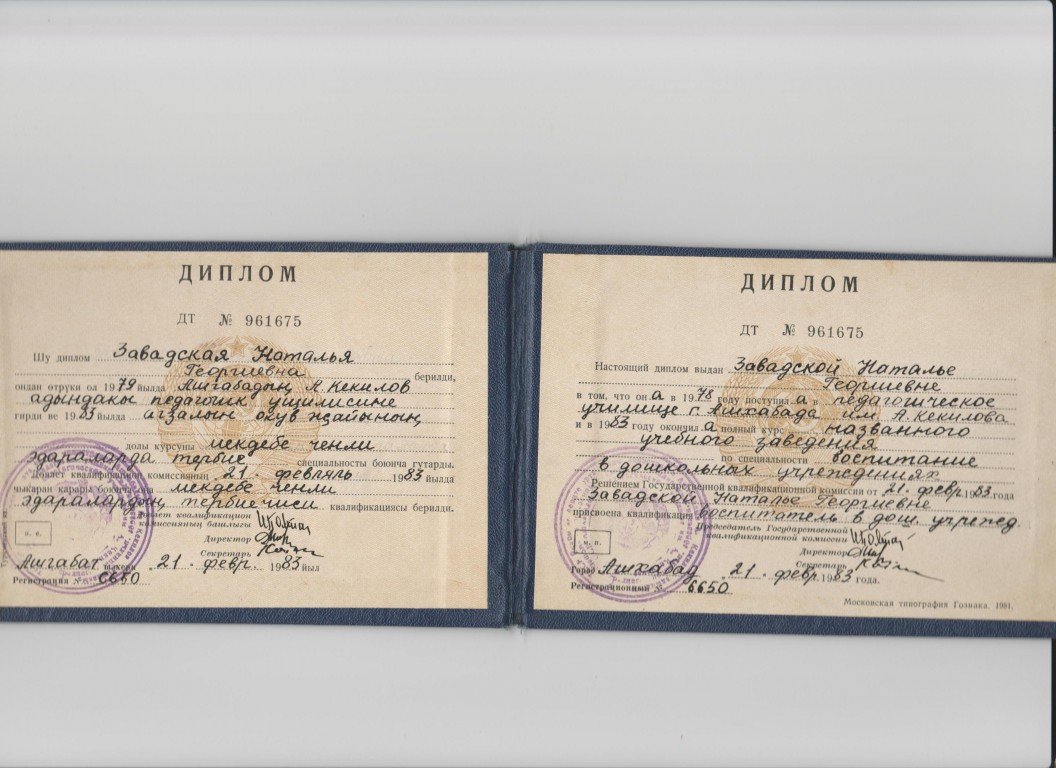 ДИПЛОМ
ДТ № 961675
Шу диплом Завадская Наталья
Георгиевна берилди,
ондан өтрүки ол 1979 йылда Ашгабадың А. Кекилов
адындакы педагогик училищесине
гирди ве 1983 йылда агзалын окув жайының
долы курсуны мекдебе ченли
эдараларда тербие специальносты боюнча гутарды.
Дөвлет квалификацион комиссияның 21 февраль 1983 йылда
чыкаран карары боюнча оңа мекдебе ченли
эдаралардың тербиечиси квалификациясы берилди.
Дөвлет квалификацион
комиссияның башлыгы
Директор
Секретарь
Ашгабат шәхери 21 февр. 1983 йыл
Регистрация № 6650
ДИПЛОМ
ДТ № 961675
Настоящий диплом выдан Завадской Наталье
Георгиевне
в том, что он а в 1978 году поступил а в педагогическое
училище г. Ашхабада им. А. Кекилова
и в 1983 году окончил а полный курс названного
учебного заведения
по специальности воспитание
в дошкольных учреждениях
Решением Государственной квалификационной комиссии от 21 февр. 1983 года
Завадской Наталье Георгиевне
присвоена квалификация воспитатель в дош. учрежд.
Председатель Государственной
квалификационной комиссии
Директор
Секретарь
м. п.
Город Ашхабад 21 февр. 1983 года.
Регистрационный № 6650
Московская типография Гознака. 1981.